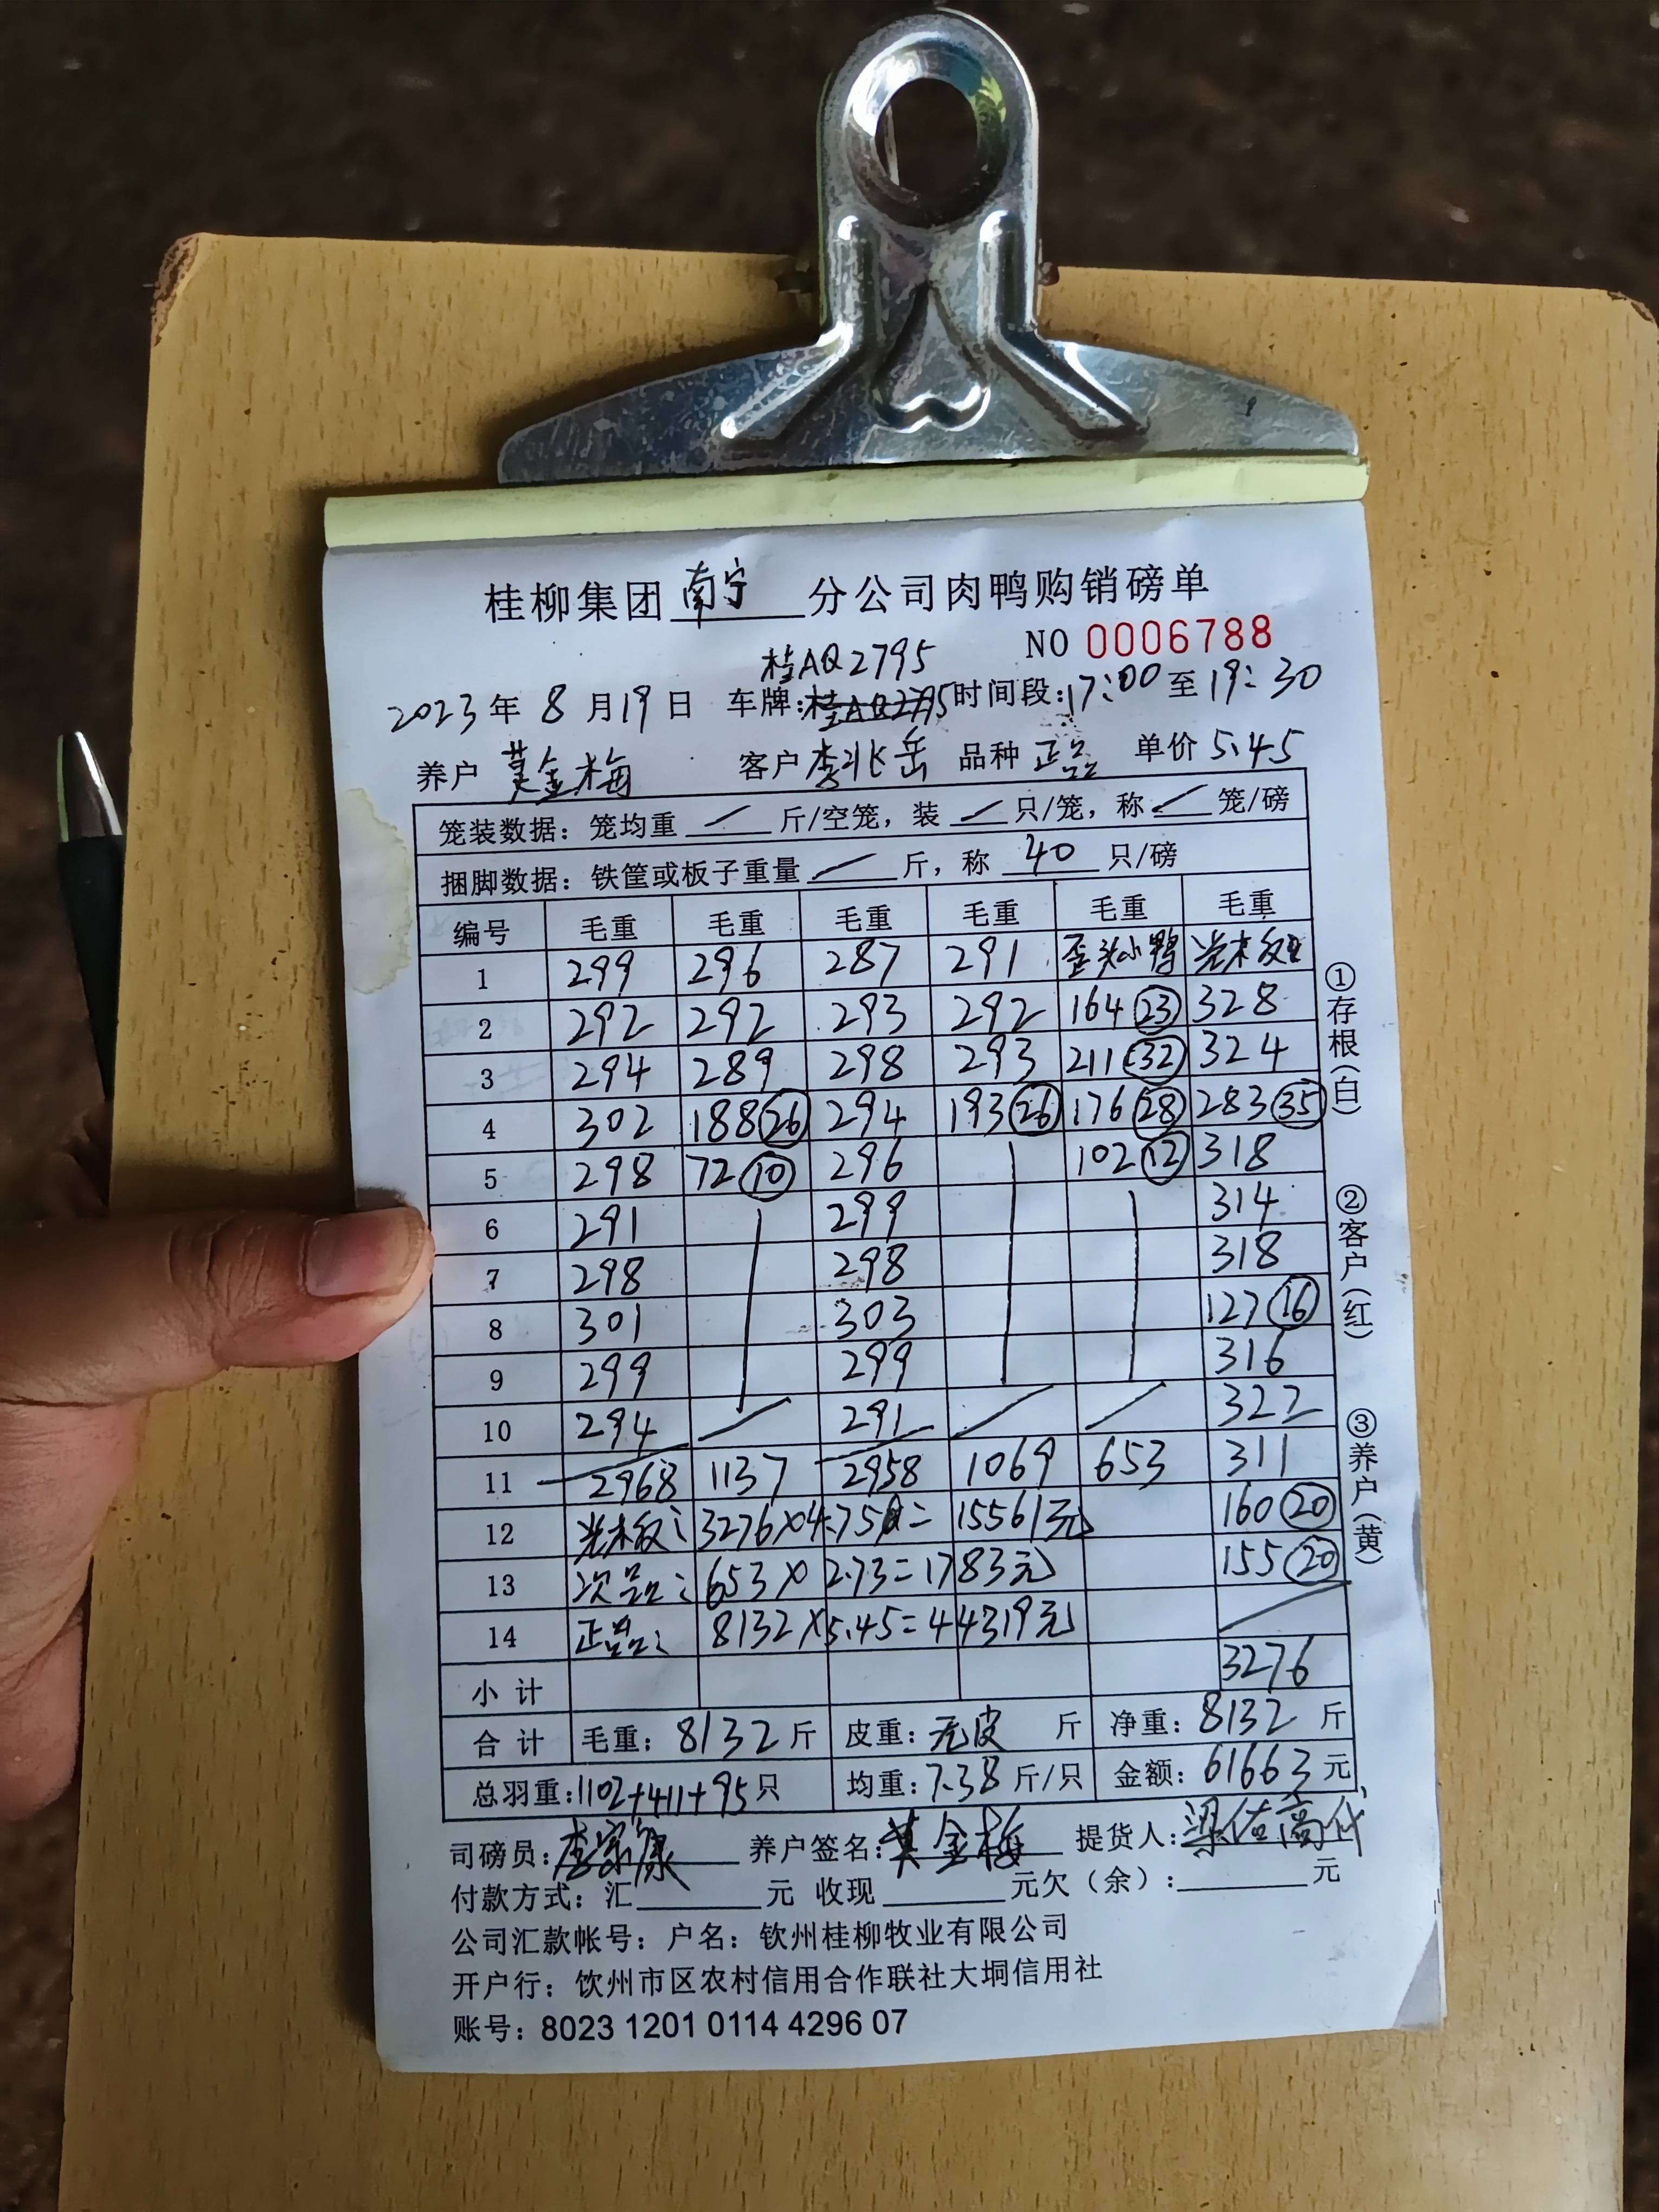 桂柳集团 南宁 分公司肉鸭购销磅单
NO 0006788
桂AQ2795
2023年 8月19日 车牌:桂AQ2795 时间段:17:00至19:30
养户 莫金梅 客户 李兆岳 品种 正品 单价 5.45
笼装数据：笼均重 / 斤/空笼，装 / 只/笼，称 / 笼/磅
捆脚数据：铁筐或板子重量 / 斤，称 40 只/磅
编号 毛重 毛重 毛重 毛重 毛重 毛重
1 299 296 287 291 歪头小鸭 光木板
2 292 292 293 292 164 23 328
3 294 289 298 293 211 32 324
4 302 188 26 294 193 26 176 28 283 35
5 298 72 10 296 102 12 318
6 291 299 314
7 298 298 318
8 301 303 127 16
9 299 299 316
10 294 291 322
11 2968 1137 2958 1069 653 311
12 光木板: 3276×4.75= 15561元 160 20
13 次品: 653×2.73=1783元 155 20
14 正品: 8132×5.45=44319元
小计 3276
合计 毛重: 8132 斤 皮重: 无皮 斤 净重: 8132 斤
总羽重:1102+411+95只 均重:7.38 斤/只 金额: 61663 元
司磅员:李家康 养户签名:莫金梅 提货人:梁佐高代
付款方式：汇 元 收现 元欠（余）: 元
公司汇款帐号：户名：钦州桂柳牧业有限公司
开户行：钦州市区农村信用合作联社大垌信用社
账号：8023 1201 0114 4296 07
①存根（白）
②客户（红）
③养户（黄）